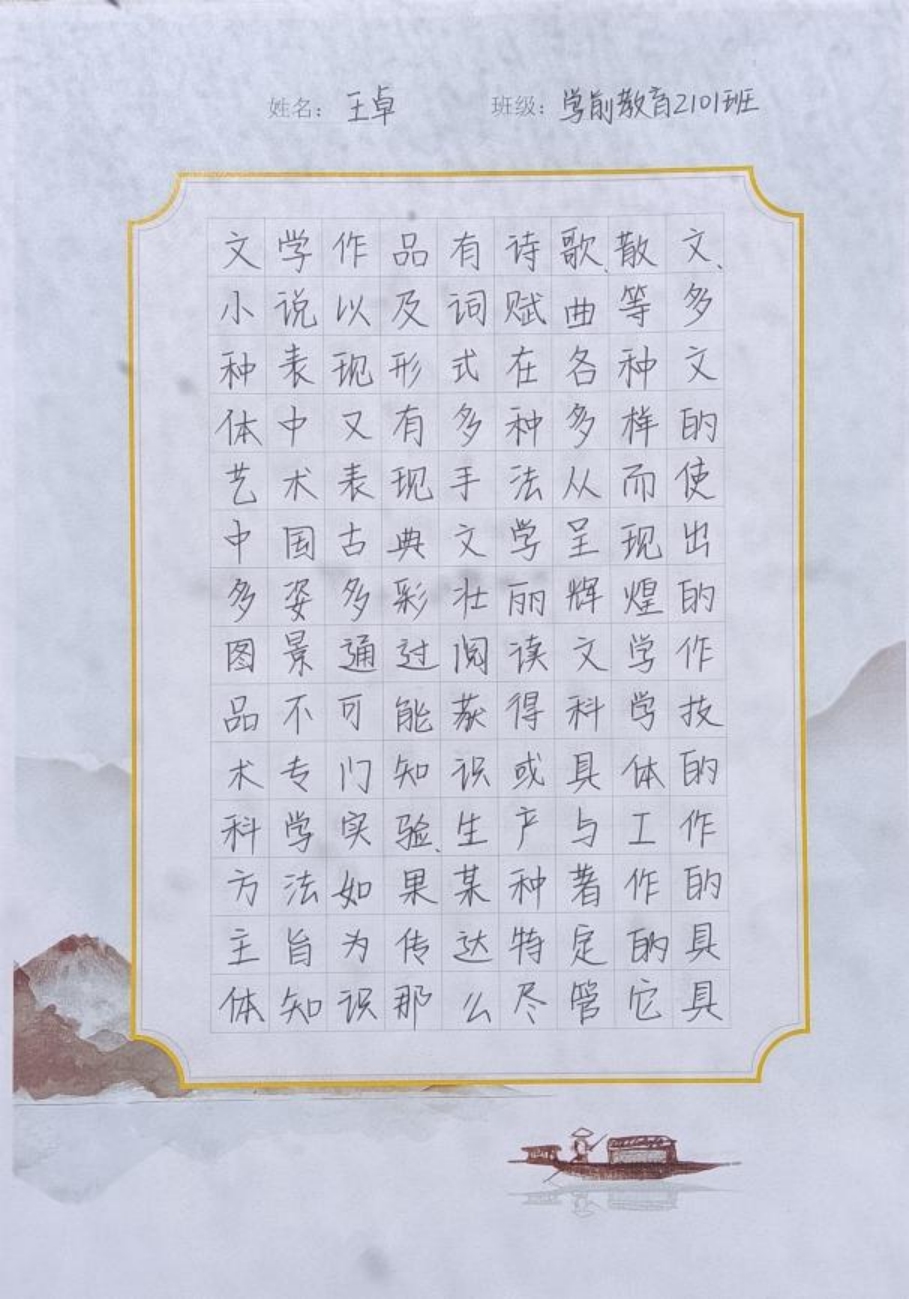 姓名：王卓 班级：学前教育2101班
文学作品有诗歌、散文、
小说以及词赋曲等多
种表现形式在各种文
体中又有多种多样的
艺术表现手法从而使
中国古典文学呈现出
多姿多彩壮丽辉煌的
图景通过阅读文学作
品不可能获得科学技
术专门知识或具体的
科学实验、生产与工作
方法如果某种著作的
主旨为传达特定的具
体知识那么尽管它具